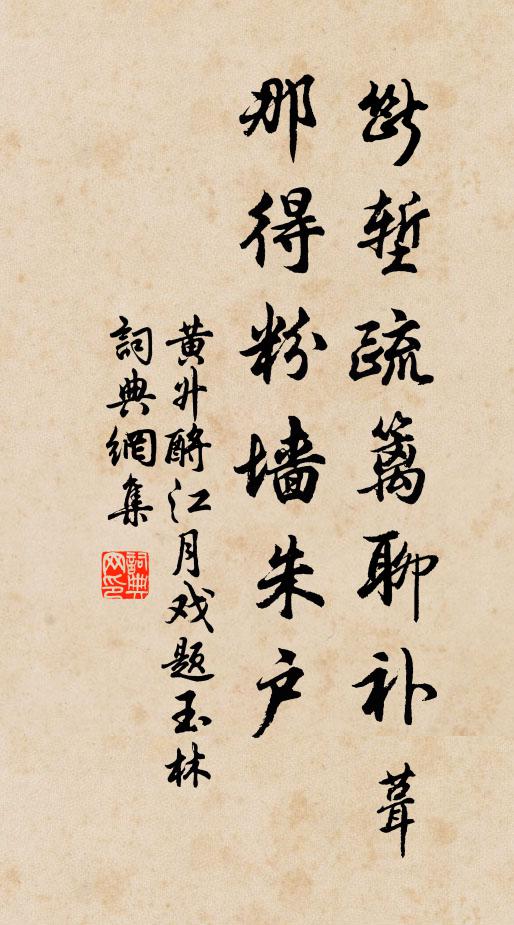 断堑疏篱聊补葺
那得粉墙朱户
黄升酹江月戏题玉林
詞典網集
詞典网印